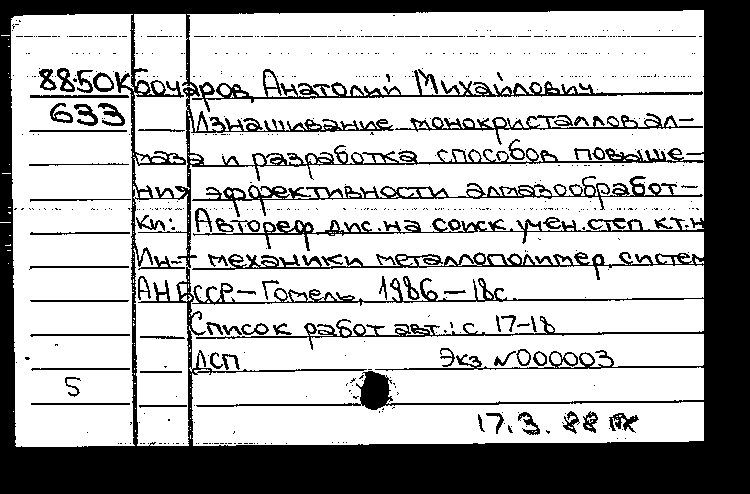 88-50К Бочаров, Анатолий Михайлович
633 Изнашивание монокристаллов ал-
маза и разработка способов повыше-
ния эффективности алмазообработ-
ки: Автореф. дис. на соиск. учен. степ. к.т.н
Ин-т механики металлополимер. систем
АН БССР. – Гомель, 1986. – 18с.
Список работ авт.: с. 17-18
ДСП Экз. №000003
5
17.3.88